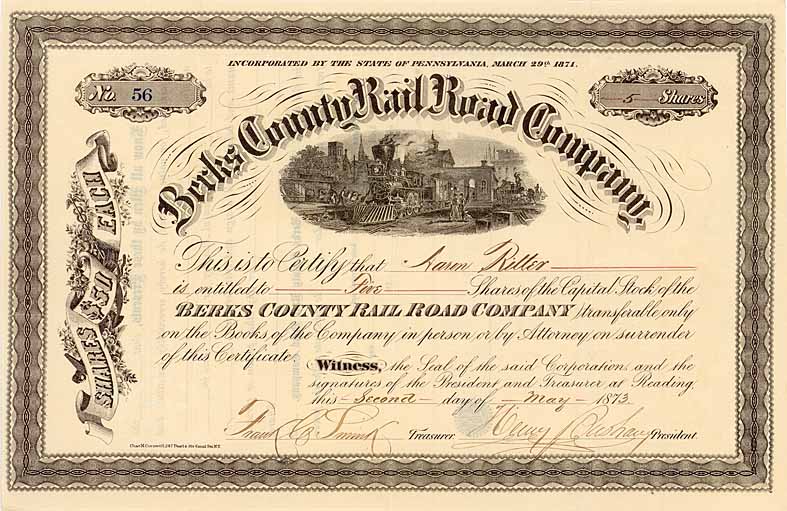 INCORPORATED BY THE STATE OF PENNSYLVANIA, MARCH 29th 1871.
No. 56
5 Shares
Berks County Rail Road Company,
SHARES $50 EACH
This is to Certify that Aaron
is entitled to Five Shares of the Capital Stock of the
BERKS COUNTY RAIL ROAD COMPANY, transferable only
on the Books of the Company in person or by Attorney on surrender
of this Certificate.
Witness, the Seal of the said Corporation and the
signatures of the President and Treasurer at Reading
this Second day of May 1873.
Frank Treasurer Henry President.